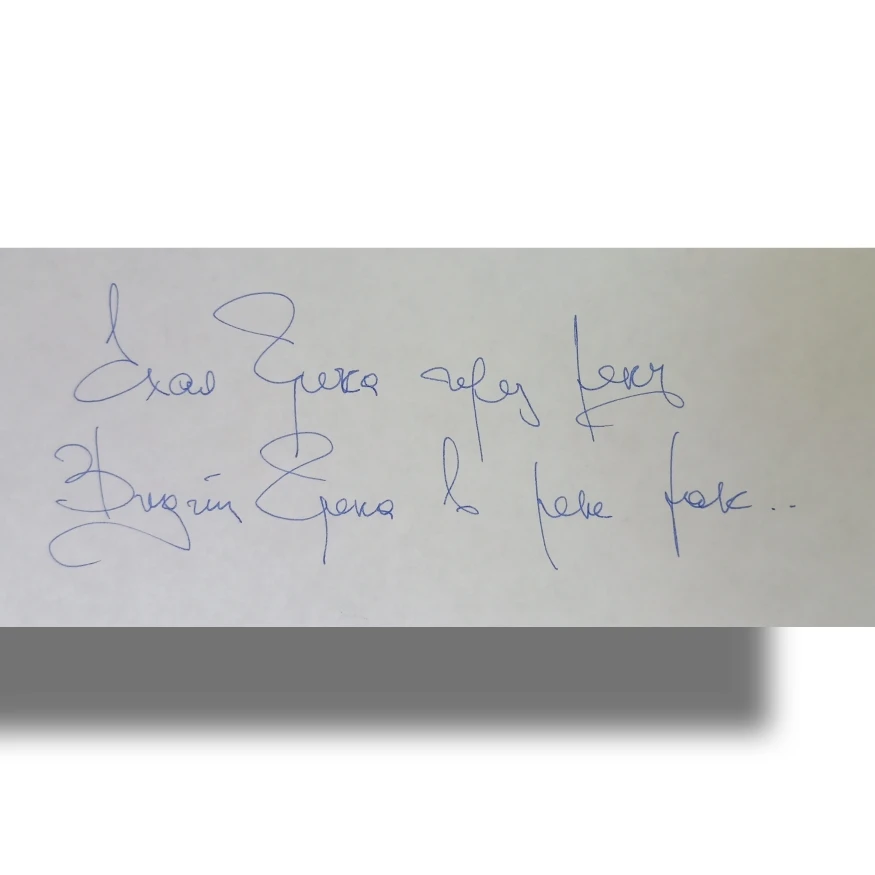 Ехал Грека через реку
Видит Грека в реке рак..